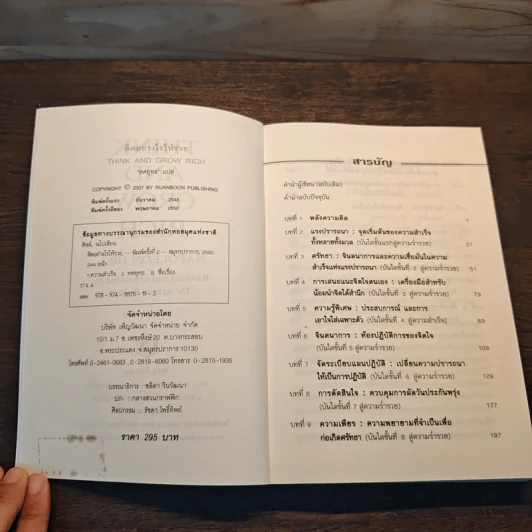 คิดอย่างไรให้รวย
THINK AND GROW RICH
"ทศยุทธ" แปล
COPYRIGHT © 2007 BY RUANBOON PUBLISHING
พิมพ์ครั้งแรก ธันวาคม 2548
พิมพ์ครั้งที่สอง พฤษภาคม 2550
ข้อมูลทางบรรณานุกรมของสำนักหอสมุดแห่งชาติ
ฮิลล์, นโปเลียน.
คิดอย่างไรให้รวย -- พิมพ์ครั้งที่ 2 -- สมุทรปราการ, 2550
344 หน้า
1.ความสำเร็จ I. ทศยุทธ II. ชื่อเรื่อง
174.4
ISBN 978 - 974 - 9870 - 9 - 3
จัดจำหน่ายโดย
บริษัท เพ็ญวัฒนา จัดจำหน่าย จำกัด
10/1 ม.7 ซ.เพชรหึงษ์ 20 ต.บางกระสอบ
อ.พระประแดง จ.สมุทรปราการ 10130
โทรศัพท์ 0-2461-0683, 0-2819-6060 โทรสาร 0-2815-1935
บรรณาธิการ : ชลิตา รินวัฒนา
ปก : กลางสวนกราฟฟิก
ศิลปกรรม : รัชดา โพธิ์ทิพย์
ราคา 295 บาท
สารบัญ
คำนำผู้เขียน (ฉบับเดิม)
คำนำฉบับปัจจุบัน
บทที่ 1 พลังความคิด 1
บทที่ 2 แรงปรารถนา : จุดเริ่มต้นของความสำเร็จ
ทั้งหลายทั้งมวล (บันไดขั้นแรกสู่ความร่ำรวย) 21
บทที่ 3 ศรัทธา : จินตนาการและความเชื่อมั่นในความ
สำเร็จแห่งแรงปรารถนา (บันไดขั้นที่ 2 สู่ความร่ำรวย) 51
บทที่ 4 การเสนอแนะจิตใจตนเอง : เครื่องมือสำหรับ
น้อมนำจิตใต้สำนึก (บันไดขั้นที่ 3 สู่ความร่ำรวย) 79
บทที่ 5 ความรู้พิเศษ : ประสบการณ์ และการ
เอาใจใส่เฉพาะตัว (บันไดขั้นที่ 4 สู่ความร่ำรวย) 89
บทที่ 6 จินตนาการ : ห้องปฏิบัติการของจิตใจ
(บันไดขั้นที่ 5 สู่ความร่ำรวย) 109
บทที่ 7 จัดระเบียบแผนปฏิบัติ : เปลี่ยนความปรารถนา
ให้เป็นการปฏิบัติ (บันไดขั้นที่ 6 สู่ความร่ำรวย) 129
บทที่ 8 การตัดสินใจ : ควบคุมการผัดวันประกันพรุ่ง
(บันไดขั้นที่ 7 สู่ความร่ำรวย) 177
บทที่ 9 ความเพียร : ความพยายามที่จำเป็นเพื่อ
ก่อเกิดศรัทธา (บันไดขั้นที่ 8 สู่ความร่ำรวย) 197